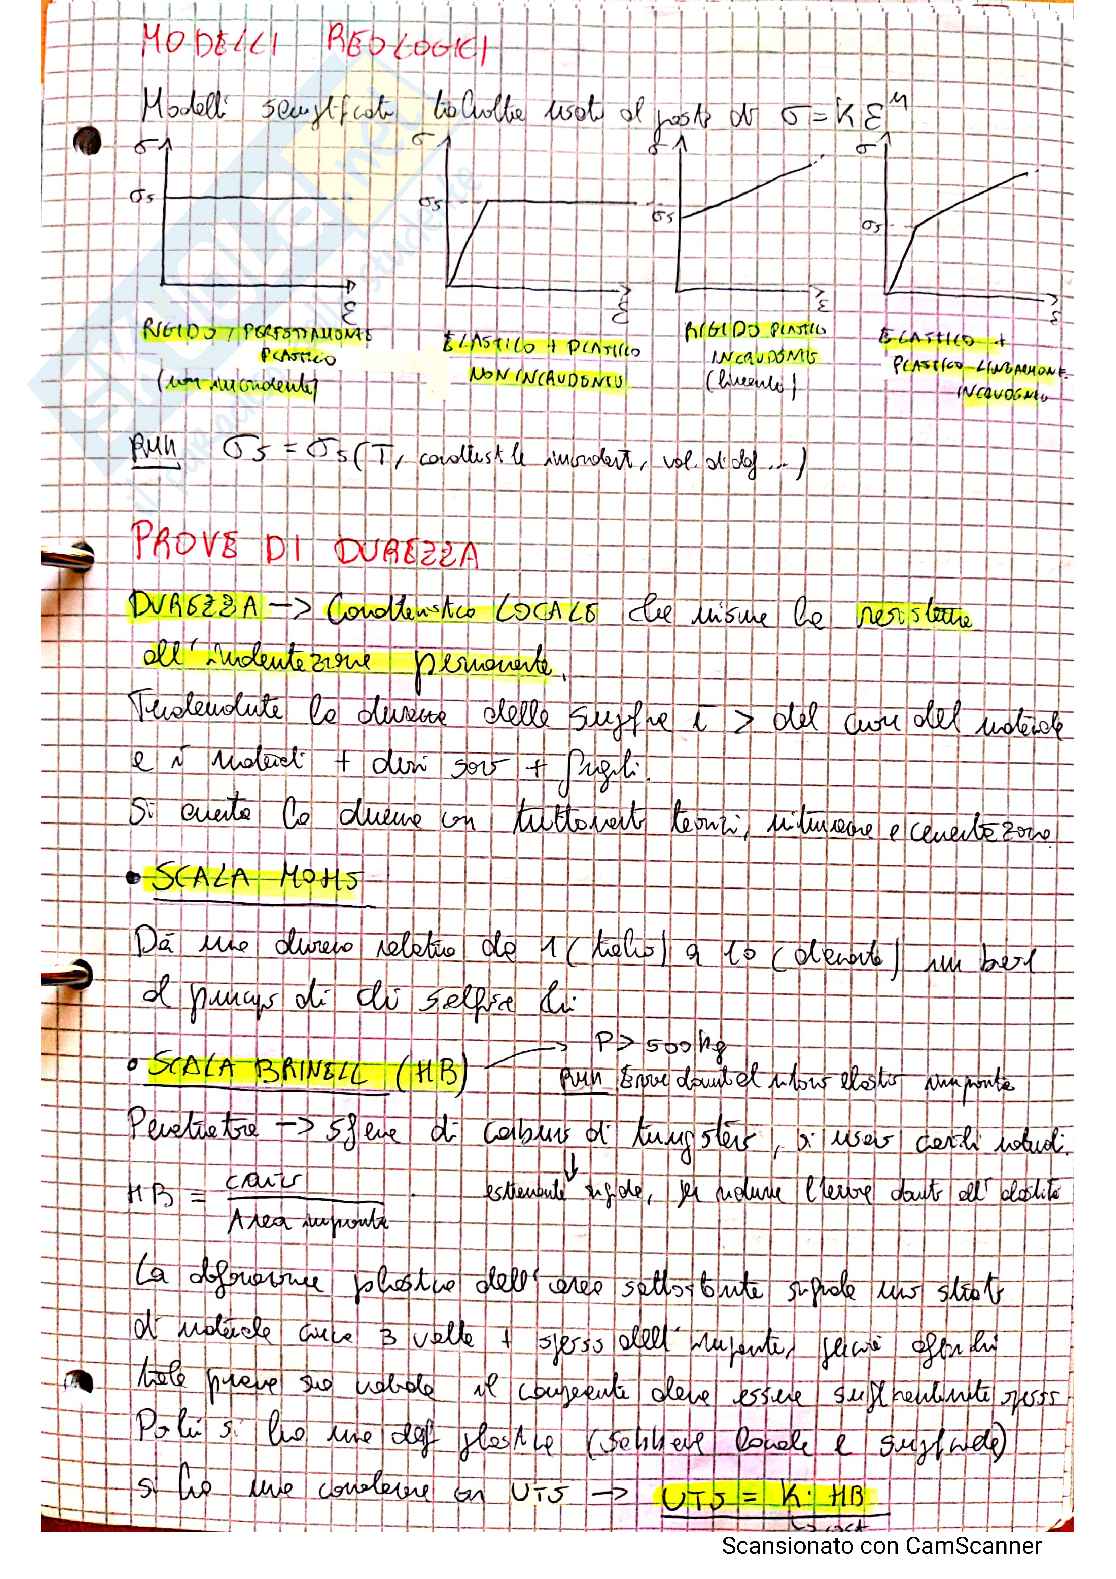 MODELLI REOLOGICI
Modelli semplificati talvolta usati al posto di σ = K ε^n
σ σ σ σ
σs σs σs σs
ε ε ε ε
RIGIDO / PERFETTAMENTE PLASTICO (non incrudente)
ELASTICO + PLASTICO NON INCRUDENTE
RIGIDO PLASTICO INCRUDENTE (lineare)
ELASTICO + PLASTICO LINEARMENTE INCRUDENTE
σs = σs (T, vel. di def ...)
PROVE DI DUREZZA
DUREZZA -> Caratteristica LOCALE che misura la resistenza
all'indentazione permanente.
Tendenzialmente la durezza della superficie è > del cuore del materiale
e i materiali + duri sono + fragili.
Si aumenta la durezza con trattamenti termici, nitrurazione e cementazione
• SCALA MOHS
Dà una durezza relativa da 1 (talco) a 10 (diamante) in base
al principio di chi
• SCALA BRINELL (HB) -> P > 500 kg
Errore dovuto al ritorno elastico impronta
Penetratore -> sfera di carburo di tungsteno, si usava
estremamente rigida, per ridurre l'errore dovuto all'elasticità
HB = carico / Area impronta
La deformazione plastica dell'area sottostante uno strato
di materiale circa 3 volte + spesso dell'impronta, affinché
tale prova sia valida il componente deve essere sufficientemente spesso
Poiché si ha una def plastica (sebbene locale e superficiale)
si ha una correlazione con UTS -> UTS = K · HB
Scansionato con CamScanner